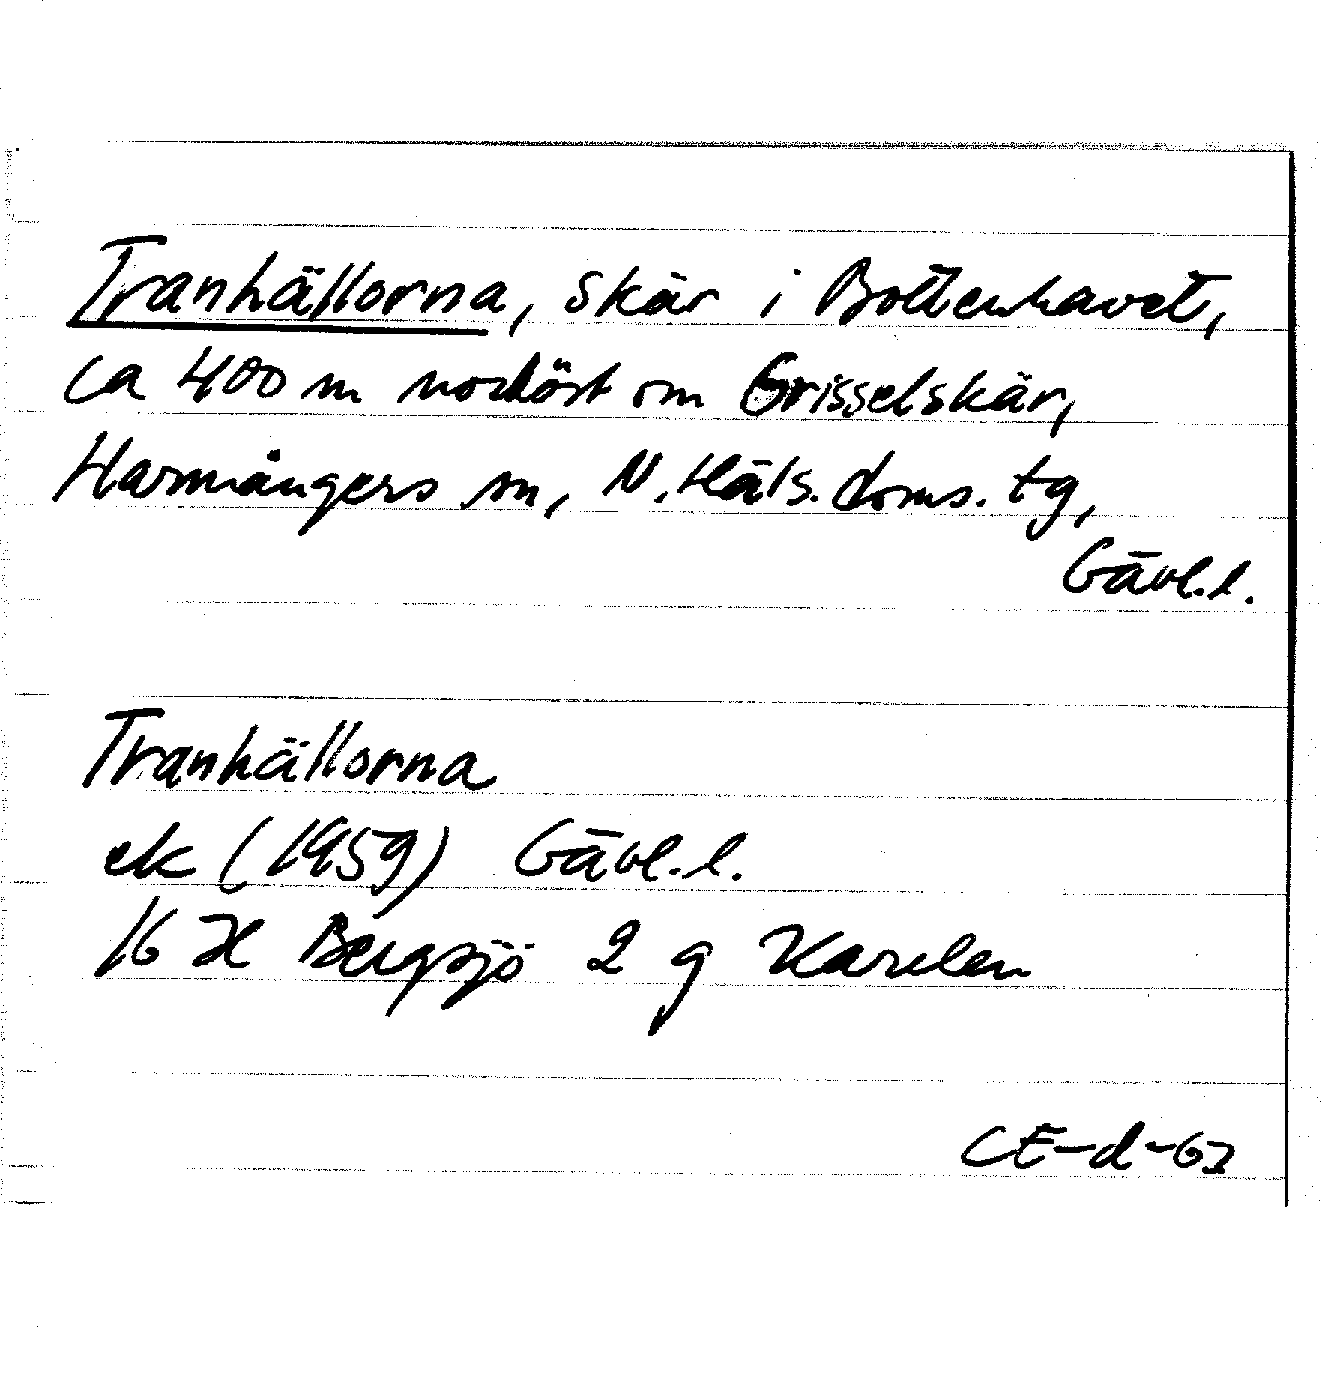 Tranhällorna, skär i Bottenhavet,
ca 400 m nordöst om Grisselskär,
Harmångers sn, N. Häls. doms. tg,
Gävl.l.
Tranhällorna
ek (1959) Gävl.l.
16 H Bergsjö 2 g Karelen
CE-d-62